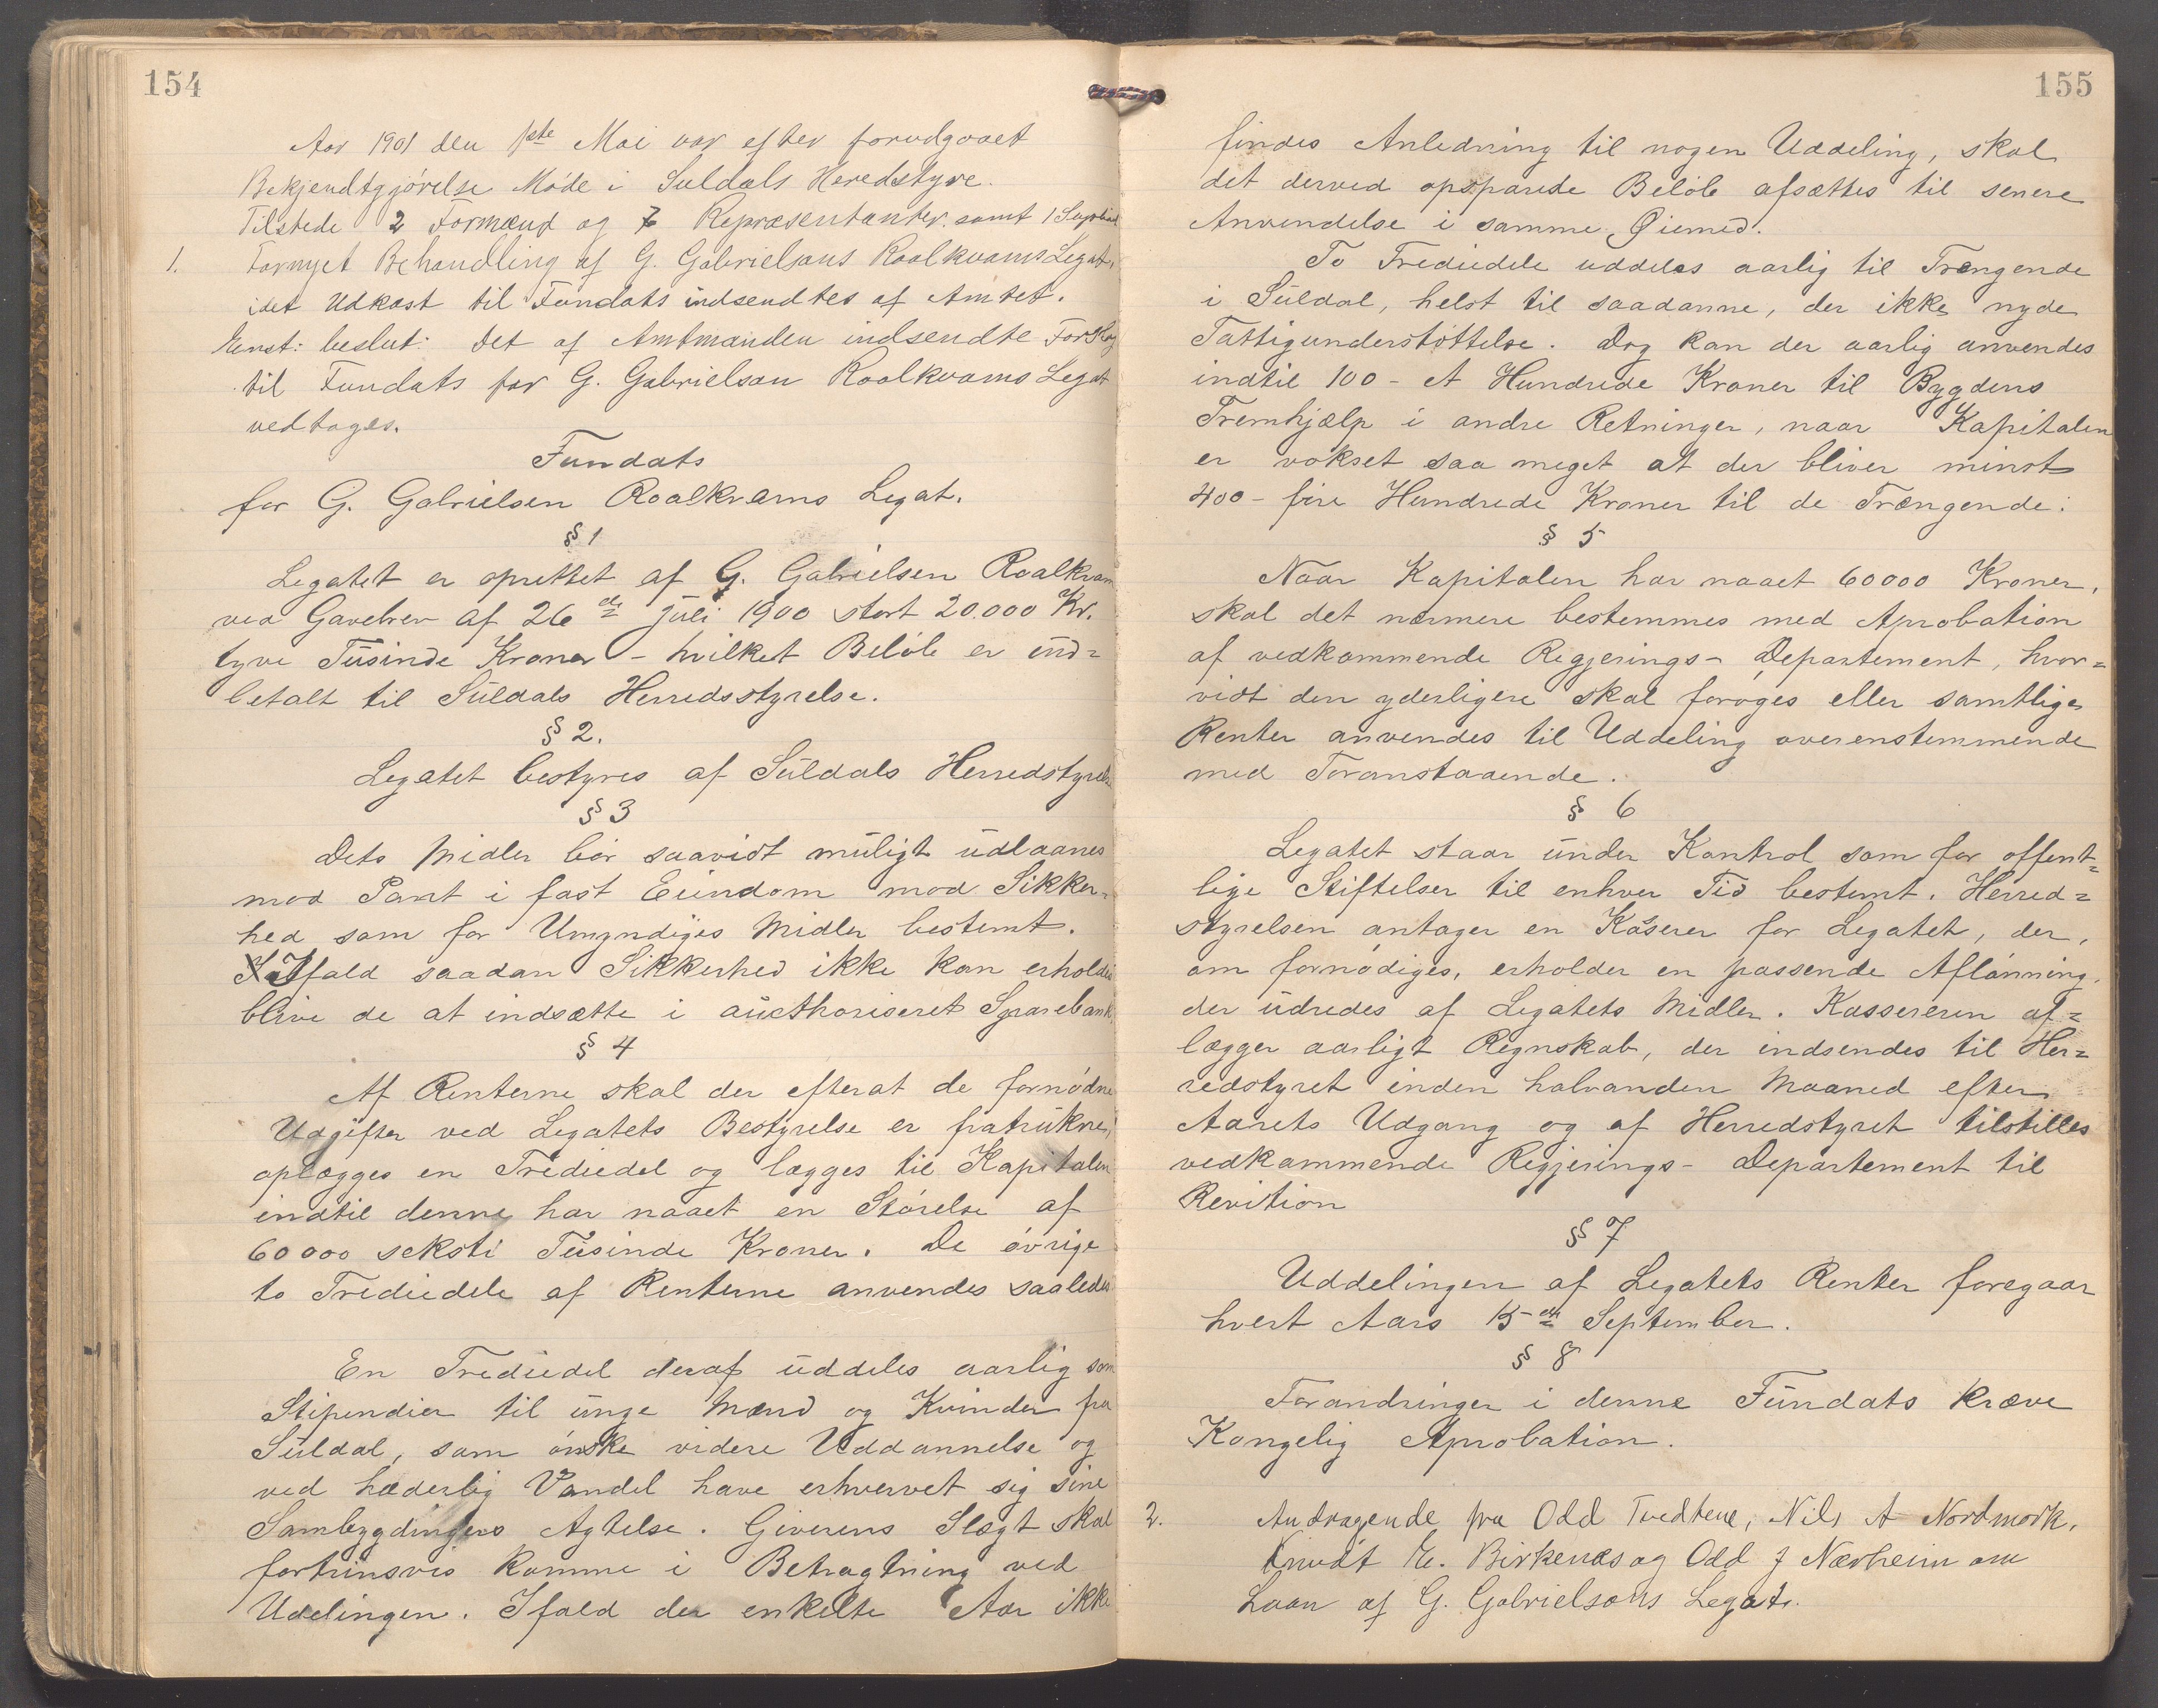 154
Aar 1901 den 1ste Mai var efter forudgaaet
Bekjendtgjørelse Møde i Suldals Heredstyre.
Tilstede 2 Formænd og 7 Repræsentanter samt 1 Supleant
1. Fornyet Behandling af G. Gabrielsons Roalkvams Legat,
idet Udkast til Fundats indsendtes af Amtet.
Enst: beslut: Det af Amtmanden indsendte Forslag
til Fundats for G. Gabrielson Roalkvams Legat
vedtages.
Fundats
for G. Gabrielsen Roalkvams Legat.
§ 1
Legatet er oprettet af G. Gabrielsen Roalkvam
ved Gavebrev af 26de juli 1900 stort 20.000 Kr.
tyve Tusinde Kroner - hvilket Beløb er ind=
betalt til Suldals Herredsstyrelse.
§ 2.
Legatet bestyres af Suldals Herredstyrelse
§ 3
Dets Midler bør saavidt muligt udlaanes
mod Pant i fast Eiendom mod Sikker=
hed som for Umyndiges Midler bestemt.
Ifald saadan Sikkerhed ikke kan erholdes
blive de at indsætte i aucthoriseret Sparebank.
§ 4
Af Renterne skal der efterat de fornødne
Udgifter ved Legatets Bestyrelse er fratrukne,
oplægges en Trediedel og lægges til Kapitalen
indtil denne har naaet en Størelse af
60000 seksti Tusinde Kroner. De øvrige
to Trediedele af Renterne anvendes saaledes
En Trediedel deraf uddeles aarlig som
Stipendier til unge Mænd og Kvinder fra
Suldal, som ønske videre Uddannelse og
ved hæderlig Vandel have erhvervet sig sine
Sambygdingers Agtelse. Giverens Slægt skal
fortrinsvis komme i Betragtning ved
Uddelingen. Ifald der enkelte Aar ikke
155
findes Anledning til nogen Uddeling, skal
det derved opsparede Beløb afsættes til senere
Anvendelse i samme Øiemed.
To Trediedele uddeles aarlig til Trængende
i Suldal, helst til saadanne, der ikke nyde
Fattigunderstøttelse. Dog kan der aarlig anvendes
indtil 100 - et Hundrede Kroner til Bygdens
Fremhjælp i andre Retninger, naar Kapitalen
er vokset saa meget at der bliver minst
400 - fire Hundrede Kroner til de Trængende.
§ 5
Naar Kapitalen har naaet 60000 Kroner,
skal det nærmere bestemmes med Aprobation
af vedkommende Regjerings- Departement, hvor=
vidt den yderligere skal forøges eller samtlige
Renter anvendes til Uddeling overenstemmende
med Foranstaaende.
§ 6
Legatet staar under Kontrol som for offent=
lige Stiftelser til enhver Tid bestemt. Herred=
styrelsen antager en Kaserer for Legatet, der,
om fornødiges, erholder en passende Aflønning,
der udredes af Legatets Midler. Kassereren af=
lægger aarligt Regnskab, der indsendes til Her=
redstyret inden halvanden Maaned efter
Aarets Udgang og af Herredstyret tilstilles
vedkommende Regjerings- Departement til
Revition
§ 7
Uddelingen af Legatets Renter foregaar
hvert Aars 15de September.
§ 8
Forandringer i denne Fundats kræve
Kongelig Aprobation.
2. Andragende fra Odd Tvedtene, Nils A Nordmork,
Knudt E. Birkenes og Odd J Nærheim om
Laan af G. Gabrielsons Legat.